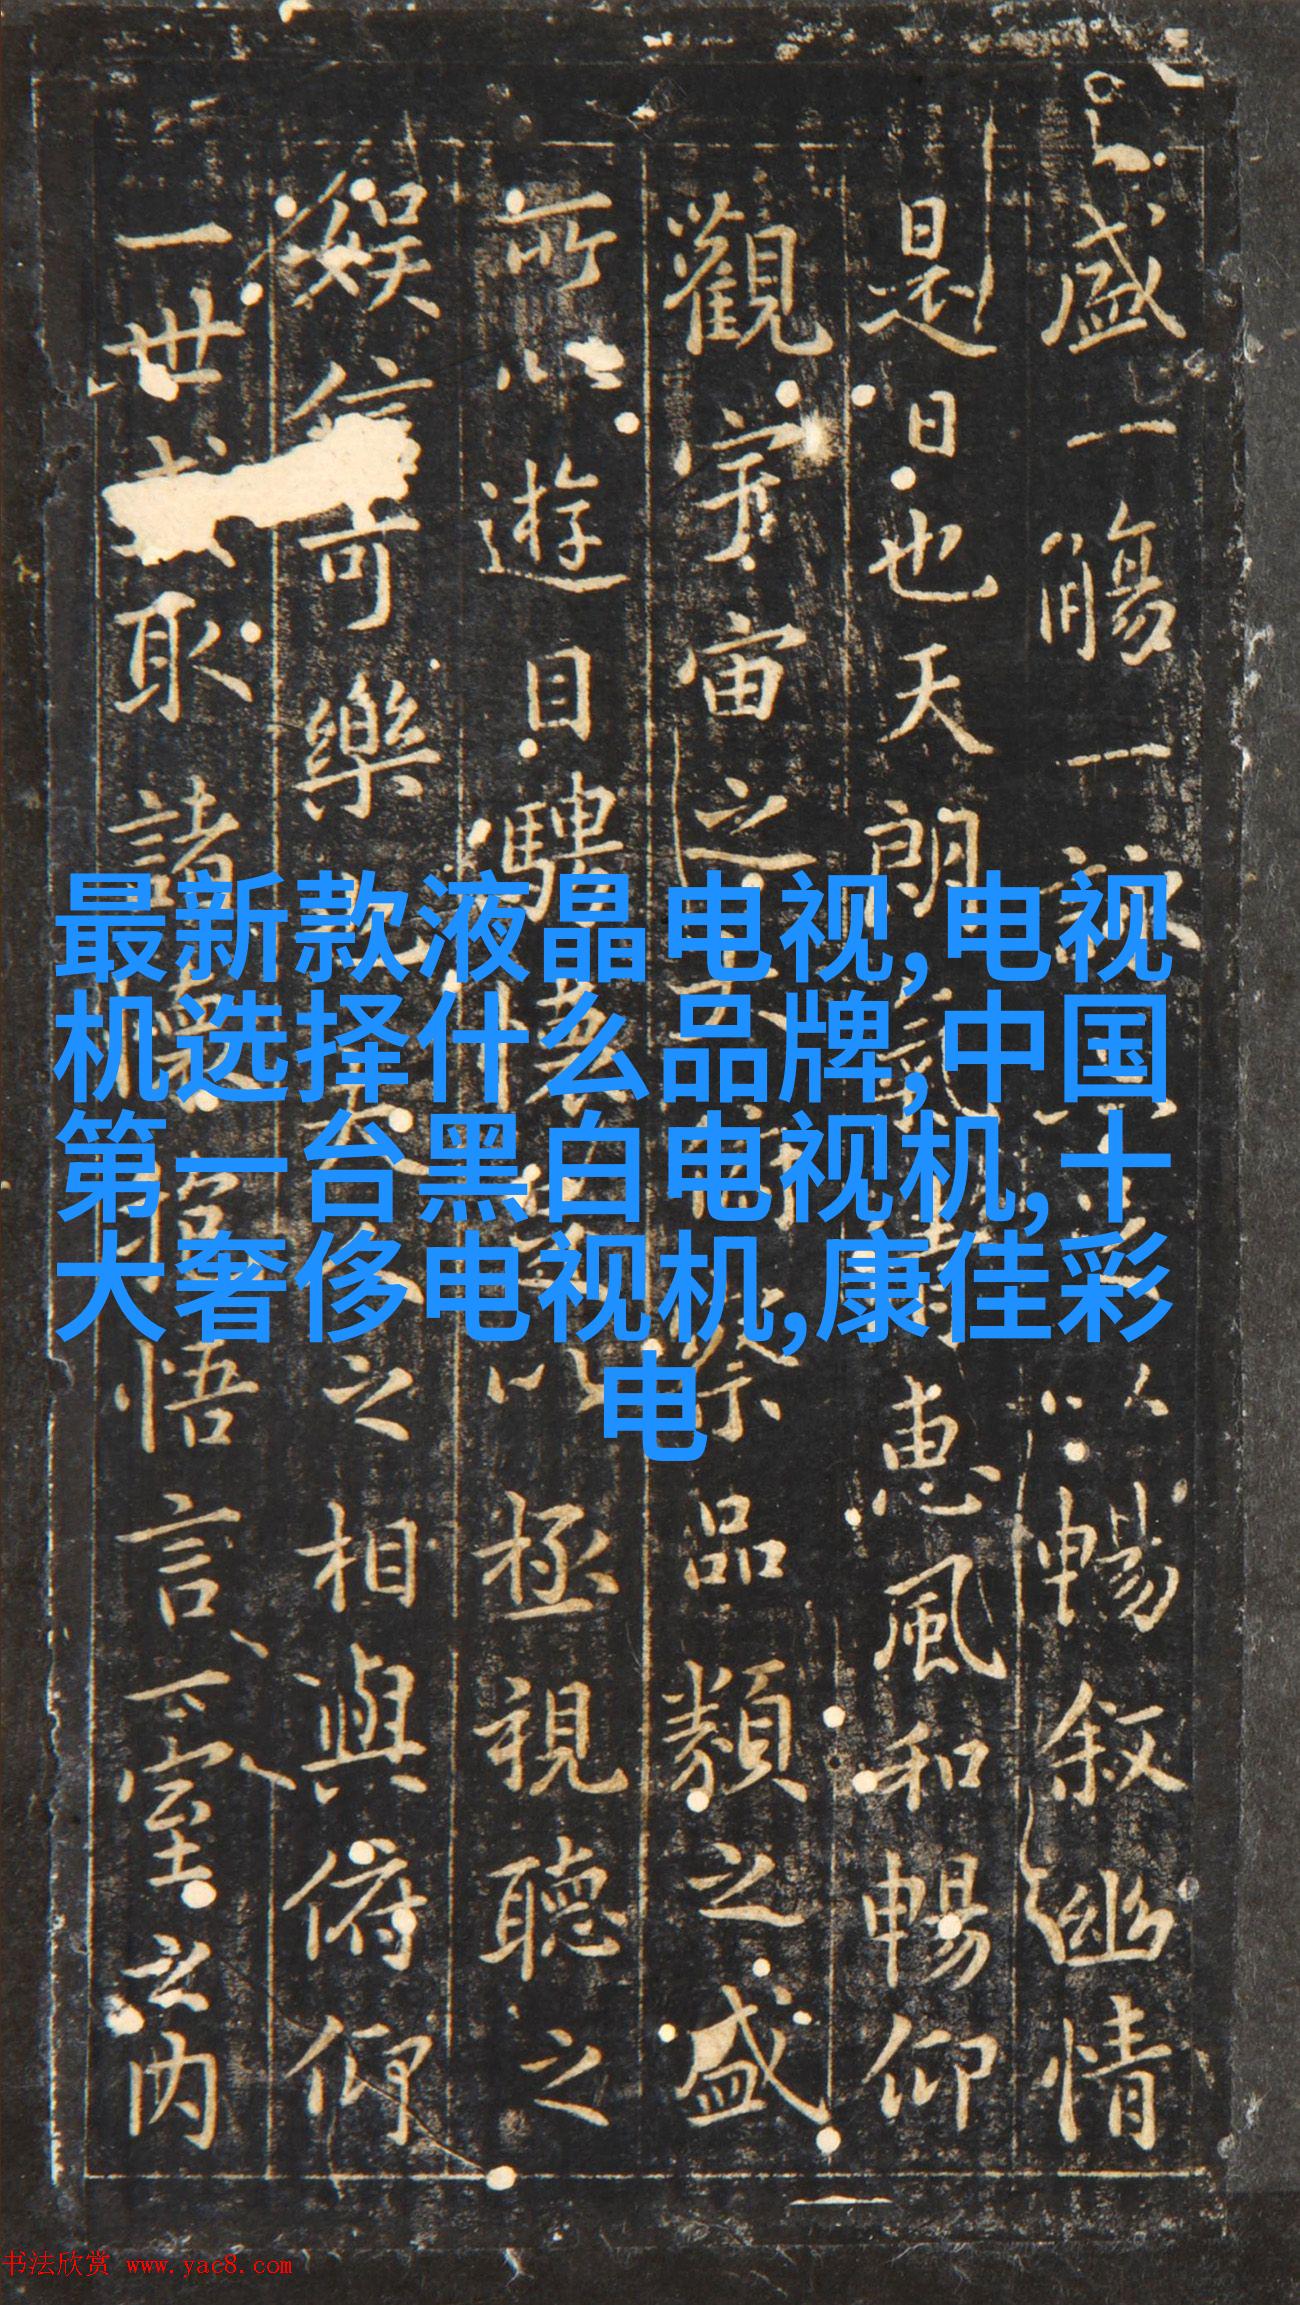 盛一觴一詠以暢叙幽情
是日也天朗惠風和暢仰
觀宇宙之察品類之盛
所以遊目騁懷以極視聽之
娛信可樂之相與俯仰
一世取諸悟言一室之內
最新款液晶电视,电视
机选择什么品牌,中国
第一台黑白电视机,十
大奢侈电视机,康佳彩
电
书法欣赏 www.yac8.com